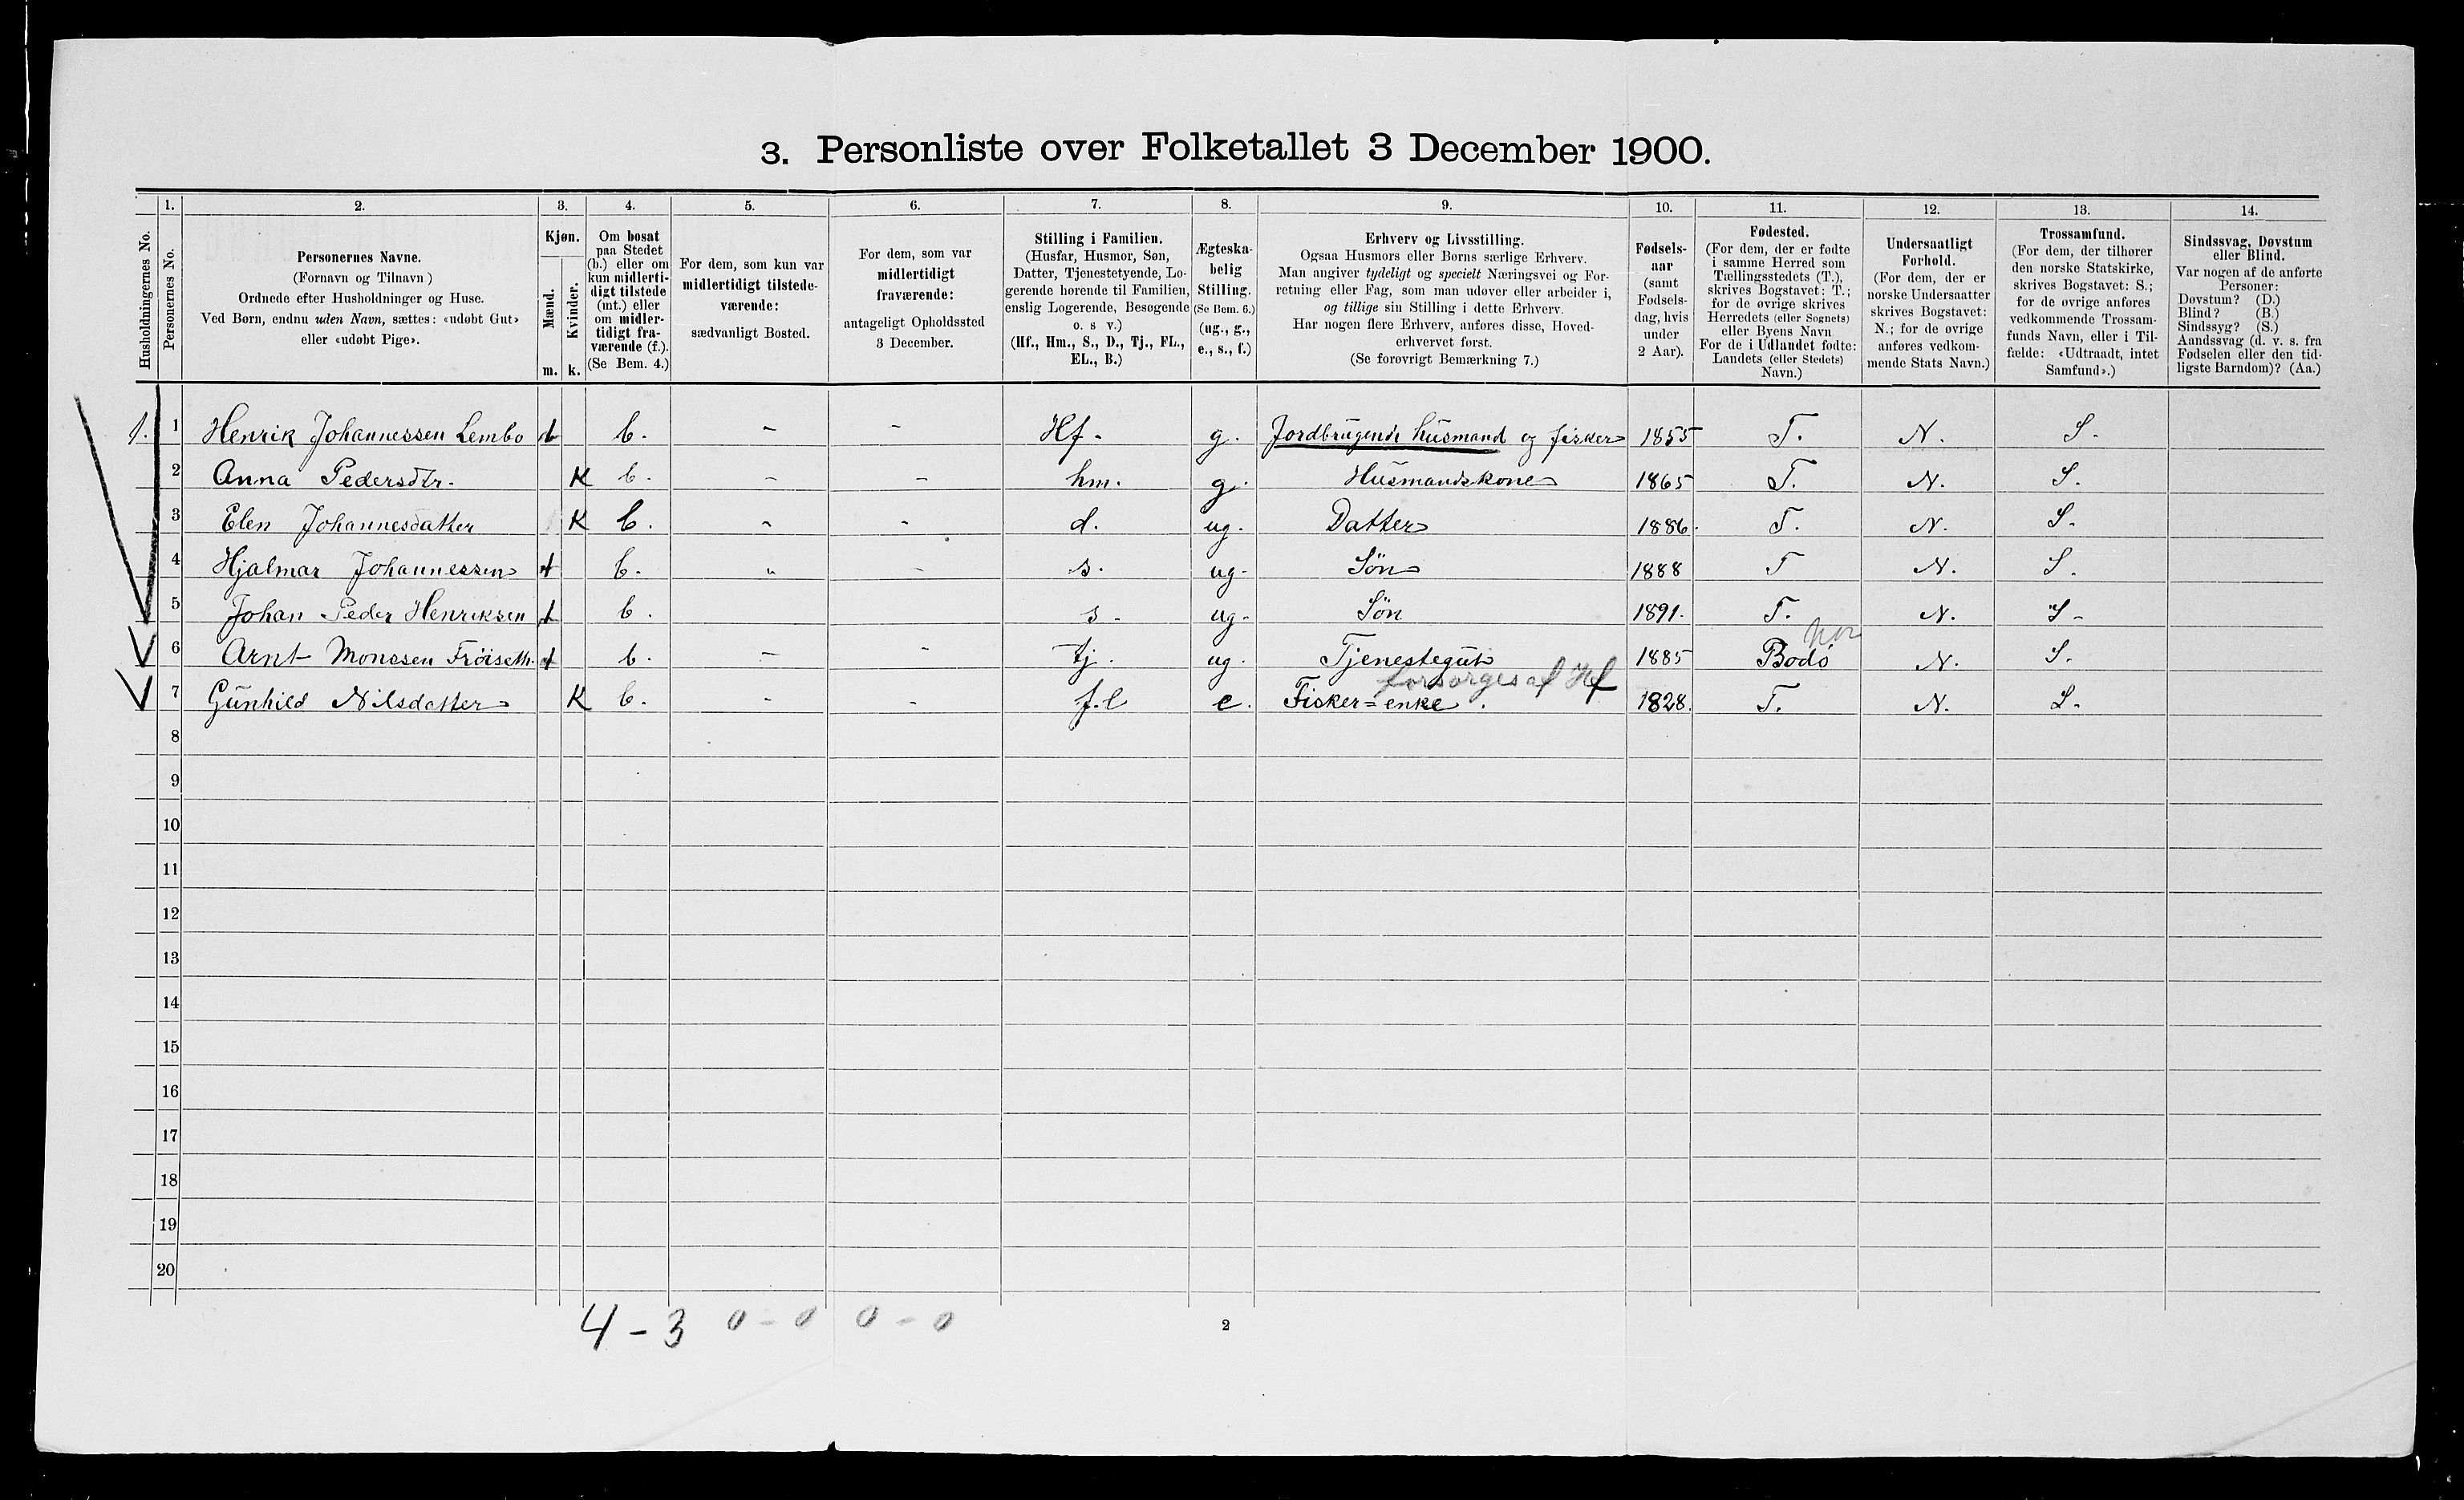 3. Personliste over Folketallet 3 December 1900.
Husholdningernes No.
1.
Personernes No.
2.
Personernes Navne.
(Fornavn og Tilnavn)
Ordnede efter Husholdninger og Huse.
Ved Børn, endnu uden Navn, sættes: «udøbt Gut»
eller «udøbt Pige».
3.
Kjøn.
Mænd.
Kvinder.
m. k.
4.
Om bosat
paa Stedet
(b.) eller om
kun midlerti-
digt tilstede
(mt.) eller
om midler-
tidigt fra-
værende (f.).
(Se Bem. 4.)
5.
For dem, som kun var
midlertidigt tilstede-
værende:
sædvanligt Bosted.
6.
For dem, som var
midlertidigt
fraværende:
antageligt Opholdssted
3 December.
7.
Stilling i Familien.
(Husfar, Husmor, Søn,
Datter, Tjenestetyende, Lo-
gerende hørende til Familien,
enslig Logerende, Besøgende
o. s v.)
(Hf., Hm., S., D., Tj., FL.,
EL., B.)
8.
Ægteska-
belig
Stilling.
(Se Bem. 6.)
(ug., g.,
e., s., f.)
9.
Erhverv og Livsstilling.
Ogsaa Husmors eller Børns særlige Erhverv.
Man angiver tydeligt og specielt Næringsvei og For-
retning eller Fag, som man udøver eller arbeider i,
og tillige sin Stilling i dette Erhverv.
Har nogen flere Erhverv, anføres disse, Hoved-
erhvervet først.
(Se forøvrigt Bemærkning 7.)
10.
Fødsels-
aar
(samt
Fødsels-
dag, hvis
under
2 Aar).
11.
Fødested.
(For dem, der er fødte
i samme Herred som
Tællingsstedets (T.),
skrives Bogstavet: T.;
for de øvrige skrives
Herredets (eller Sognets)
eller Byens Navn
For de i Udlandet fødte:
Landets (eller Stedets)
Navn.)
12.
Undersaatligt
Forhold.
(For dem, der er
norske Undersaatter
skrives Bogstavet:
N.; for de øvrige
anføres vedkom-
mende Stats Navn.)
13.
Trossamfund.
(For dem, der tilhører
den norske Statskirke,
skrives Bogstavet: S.;
for de øvrige anføres
vedkommende Trossam-
funds Navn, eller i Til-
fælde: «Udtraadt, intet
Samfund».)
14.
Sindssvag, Døvstum
eller Blind.
Var nogen af de anførte
Personer:
Døvstum? (D.)
Blind? (B.)
Sindssyg? (S.)
Aandssvag (d. v. s. fra
Fødselen eller den tid-
ligste Barndom)? (Aa.)
1. 1 Henrik Johannessen Lembo b. - - Hf. g. Jordbrugende husmand og fisker 1855 T. N. S.
2 Anna Pedersdtr. K b. - - hm. g. Husmandskone 1865 T. N. S.
3 Elen Johannesdatter K b. - - d. ug. Datter 1886. T. N. S.
4 Hjalmar Johannessen b. " - s. ug. Søn 1888 T N. S.
5 Johan Peder Henriksen b. s. ug. Søn 1891. T. N. S.
6 Arnt Monssen Frøiseth. b. - - tj. ug. Tjenestegut 1885 Bodø N. S.
forsørges af Hf
7 Gunhild Nilsdatter K b. - - f.l e. Fisker=enke. 1828. T. N. S.
8
9
10
11
12
13
14
15
16
17
18
19
20
4 - 3 0 - 0 0 - 0
2